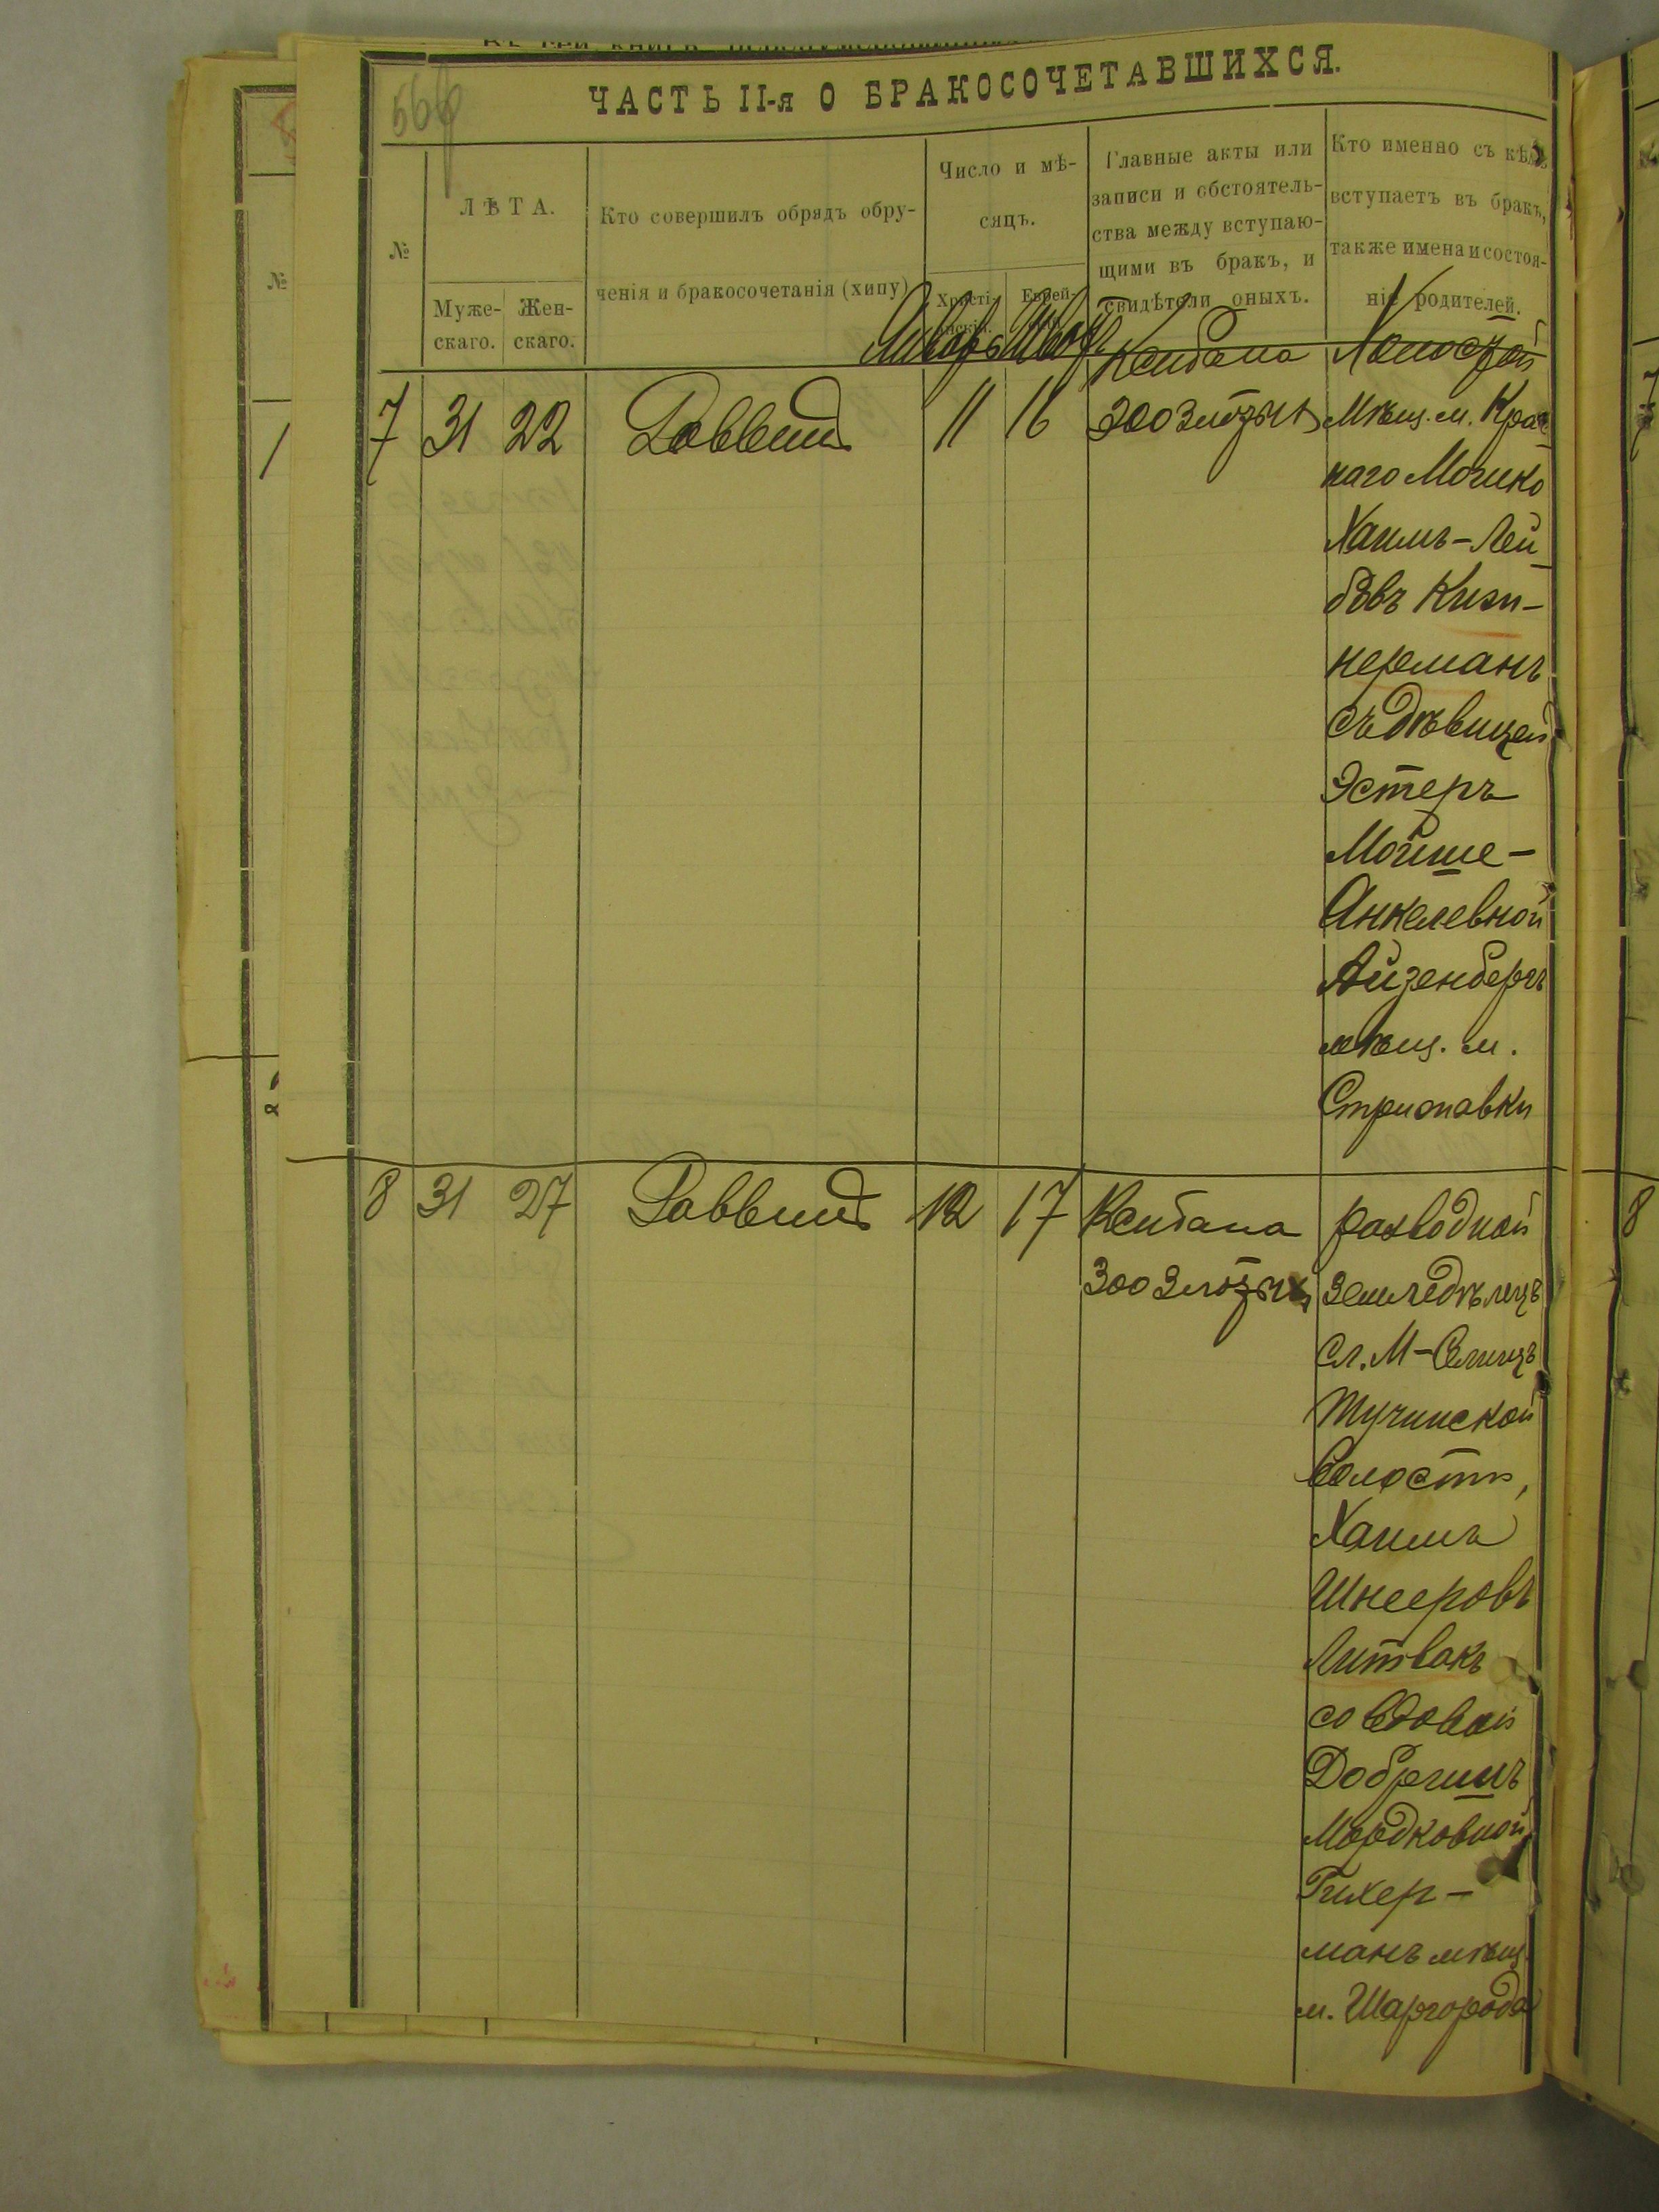 ЧАСТЬ II-я О БРАКОСОЧЕТАВШИХСЯ.
№
ЛѢТА.
Муже-
скаго.
Жен-
скаго.
Кто совершилъ обрядъ обру-
ченія и бракосочетанія (хипу)
Число и мѣ-
сяцъ.
Христі-
анскій.
Еврей-
Главные акты или
записи и обстоятель-
ства между вступаю-
щими въ бракъ, и
свидѣтели оныхъ.
Кто именно съ кѣмъ
вступаетъ въ бракъ,
также имена и состоя-
ніе родителей.
Январь Шватъ Ксибана Холостой
7 31 22 Раввинъ 11 16 200 злотыхъ Мѣщ. м. Крас
наго Мошко
Хаимъ-Лей
бовъ Кизи-
нерманъ
съ дѣвицей
Эстеръ
Мойше-
Анкелевной
Айзенбергъ
мѣщ. м.
Стрижавки
8 31 27 Раввинъ 12 17 Ксибана разводной
300 злотыхъ земледѣлецъ
сл. М-
Тучинской
Волости,
Хаимъ
Шнееровъ
Литвакъ
со вдовой
Добришъ
Мордковной
Гихер-
манъ мѣщ.
м. Шаргорода
№
7
8